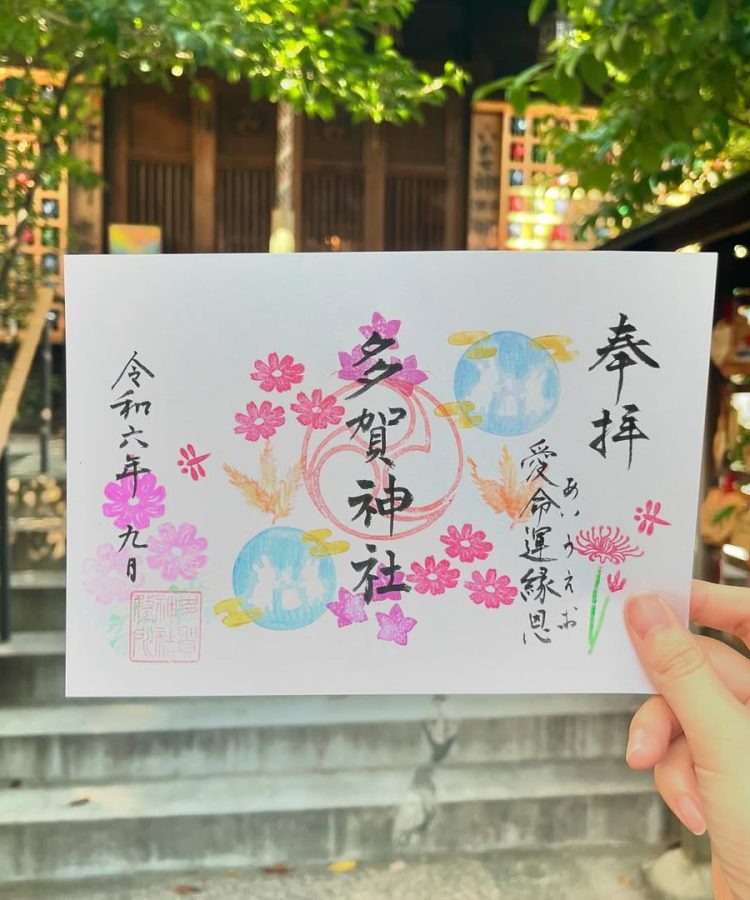 奉拝
愛命運縁恩
あいうえお
多賀神社
令和六年九月